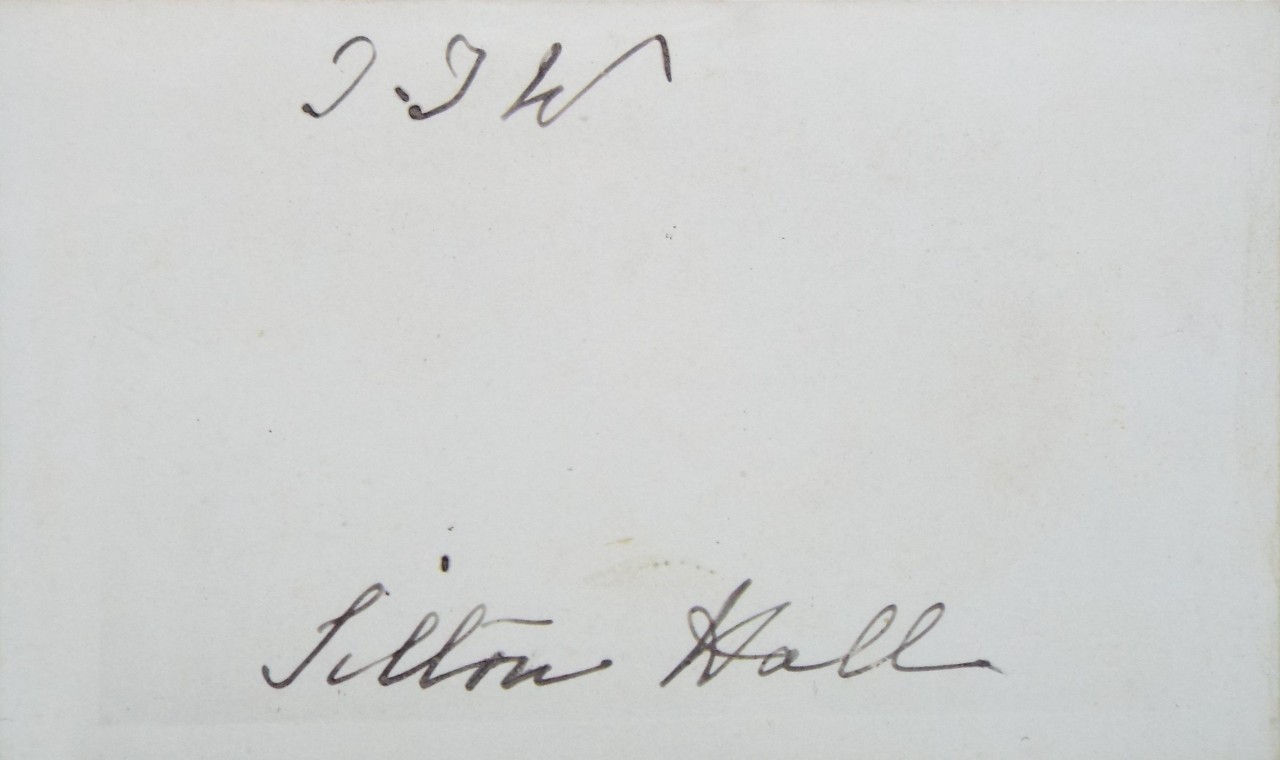 J. J W
Silton Hall